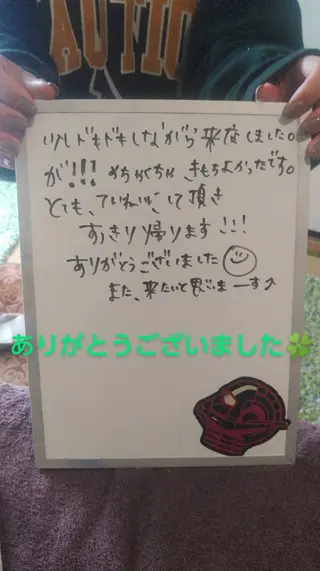 AUTIO
少しドキドキしながら来店しました。
が!!! めちゃめちゃ、きもちよかったです。
とても、ていねいにして頂き
すっきり帰ります!!!
ありがとうございました
また、来たいと思いまーす♪
ありがとうございました🍀